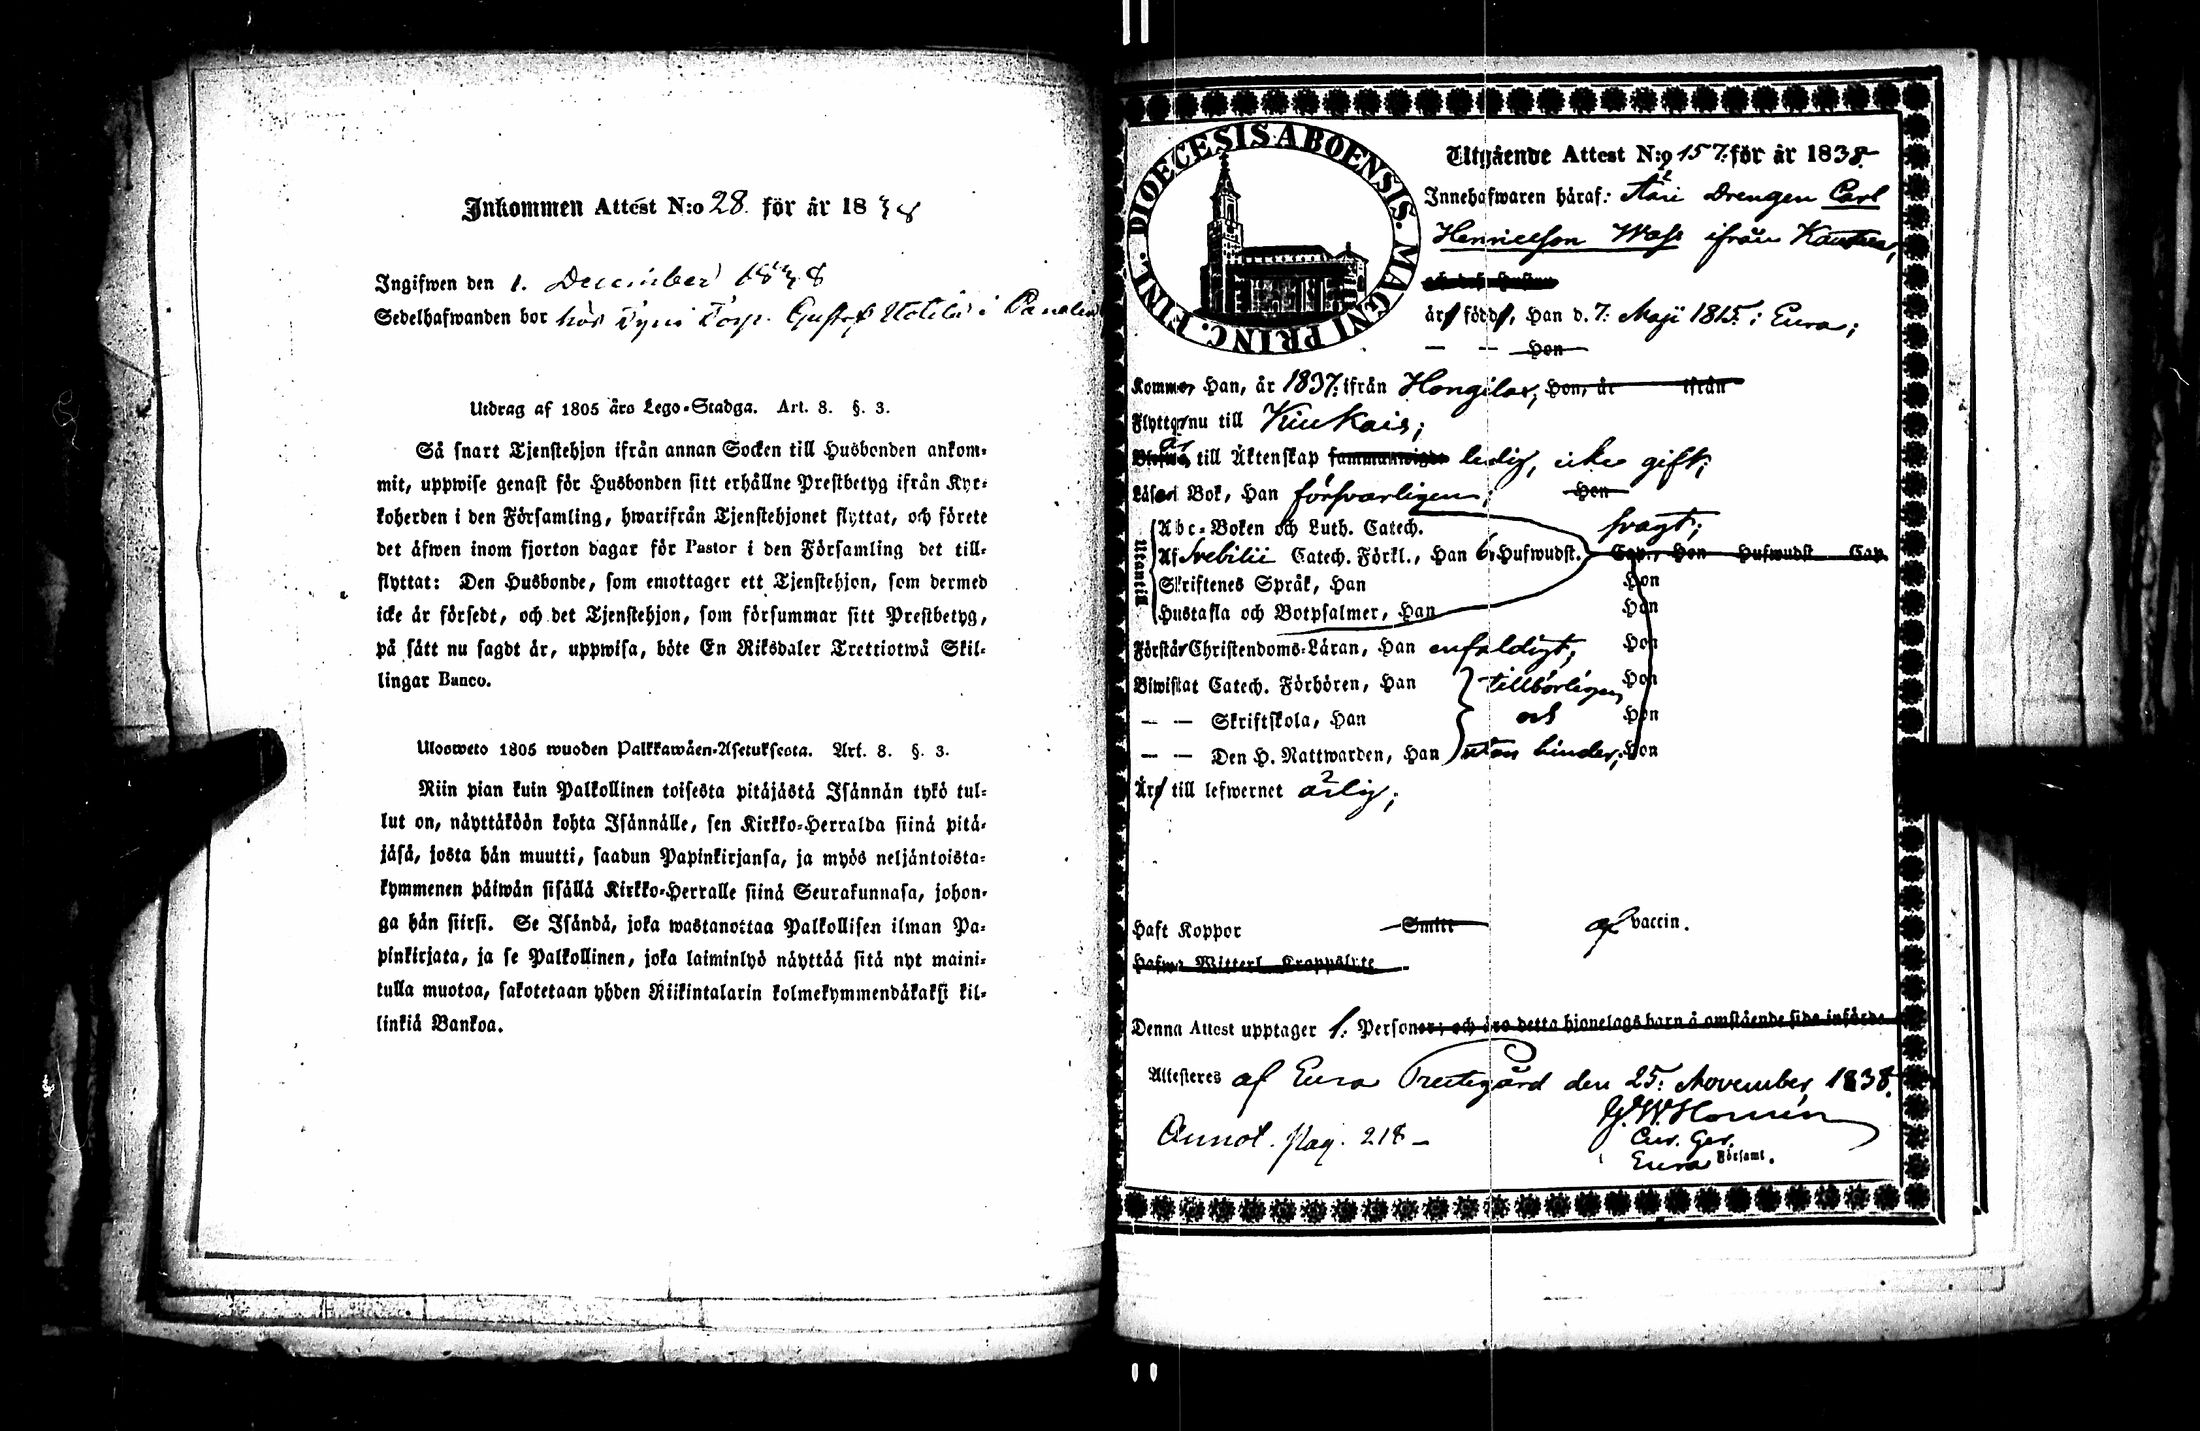 Inkommen Attest N:o 28. för år 1838
Ingifwen den 1. December 1838
Sedelhafwanden bor hos Torp. Gustaf i
Utdrag af 1805 års Lego-Stadga. Art. 8. §. 3.
Så snart Tjenstehjon ifrån annan Socken till Husbonden ankom-
mit, uppwise genast för Husbonden sitt erhållne Prestbetyg ifrån Kyr-
koherden i den Församling, hwarifrån Tjenstehjonet flyttat, och förete
det äfwen inom fjorton dagar för Pastor i den Församling det till-
flyttat: Den Husbonde, som emottager ett Tjenstehjon, som dermed
icke är försedt, och det Tjenstehjon, som försummar sitt Prestbetyg,
på sätt nu sagdt är, uppwisa, böte En Riksdaler Trettiotwå Skil-
lingar Banco.
Ulosweto 1805 wuoden Palkkawäen-Asetuksesta. Art. 8. §. 3.
Niin pian kuin Palkollinen toisesta pitäjästä Isännän tykö tul-
lut on, näyttäköön kohta Isännälle, sen Kirkko-Herralda siinä pitä-
jäsä, josta hän muutti, saadun Papinkirjansa, ja myös neljäntoista-
kymmenen päiwän sisällä Kirkko-Herralle siinä Seurakunnasa, johon-
ga hän siirsi. Se Isändä, joka wastanottaa Palkollisen ilman Pa-
pinkirjata, ja se Palkollinen, joka laiminlyö näyttää sitä nyt maini-
tulla muotoa, sakotetaan yhden Riikintalarin kolmekymmendäkaksi kil-
linkiä Bankoa.
DIOECESIS ABOENSIS. MAGNI PRINC. FINL.
Utgående Attest N:o 157. för år 1838
Innehafwaren häraf: Drengen Carl
Henricsson Wass ifrån
är född, Han d. 7. Maji 1815. i Eura;
— — Hon
Kommer, Han, år 1837. ifrån Hongilax, Hon, år ifrån
Flyttar nu till Kiukais;
är till Äktenskap ledig, icke gift;
Läser i Bok, Han försvarligen; Hon
Utantill
Abc-Boken och Luth. Catech. svagt;
Af Svebilii Catech. Förkl., Han 6. Hufwudst. Cap., Hon Hufwudst Cap.
Skriftenes Språk, Han Hon
Hustafla och Botpsalmer, Han Hon
Förstår Christendoms-Läran, Han enfaldigt; Hon
Biwistat Catech. Förhören, Han tillbörligen Hon
— — Skriftskola, Han och Hon
— — Den H. Nattwarden, Han utan hinder; Hon
Är till lefwernet ärlig;
Haft Koppor Smitt af vaccin.
Denna Attest upptager 1. Personer; och äro detta hjonelags barn å omstående sida införde
Attesteres af Eura Prestegård den 25. November 1838.
Cur. Ger.
Annot. Pag. 218 —
Eura Församl.